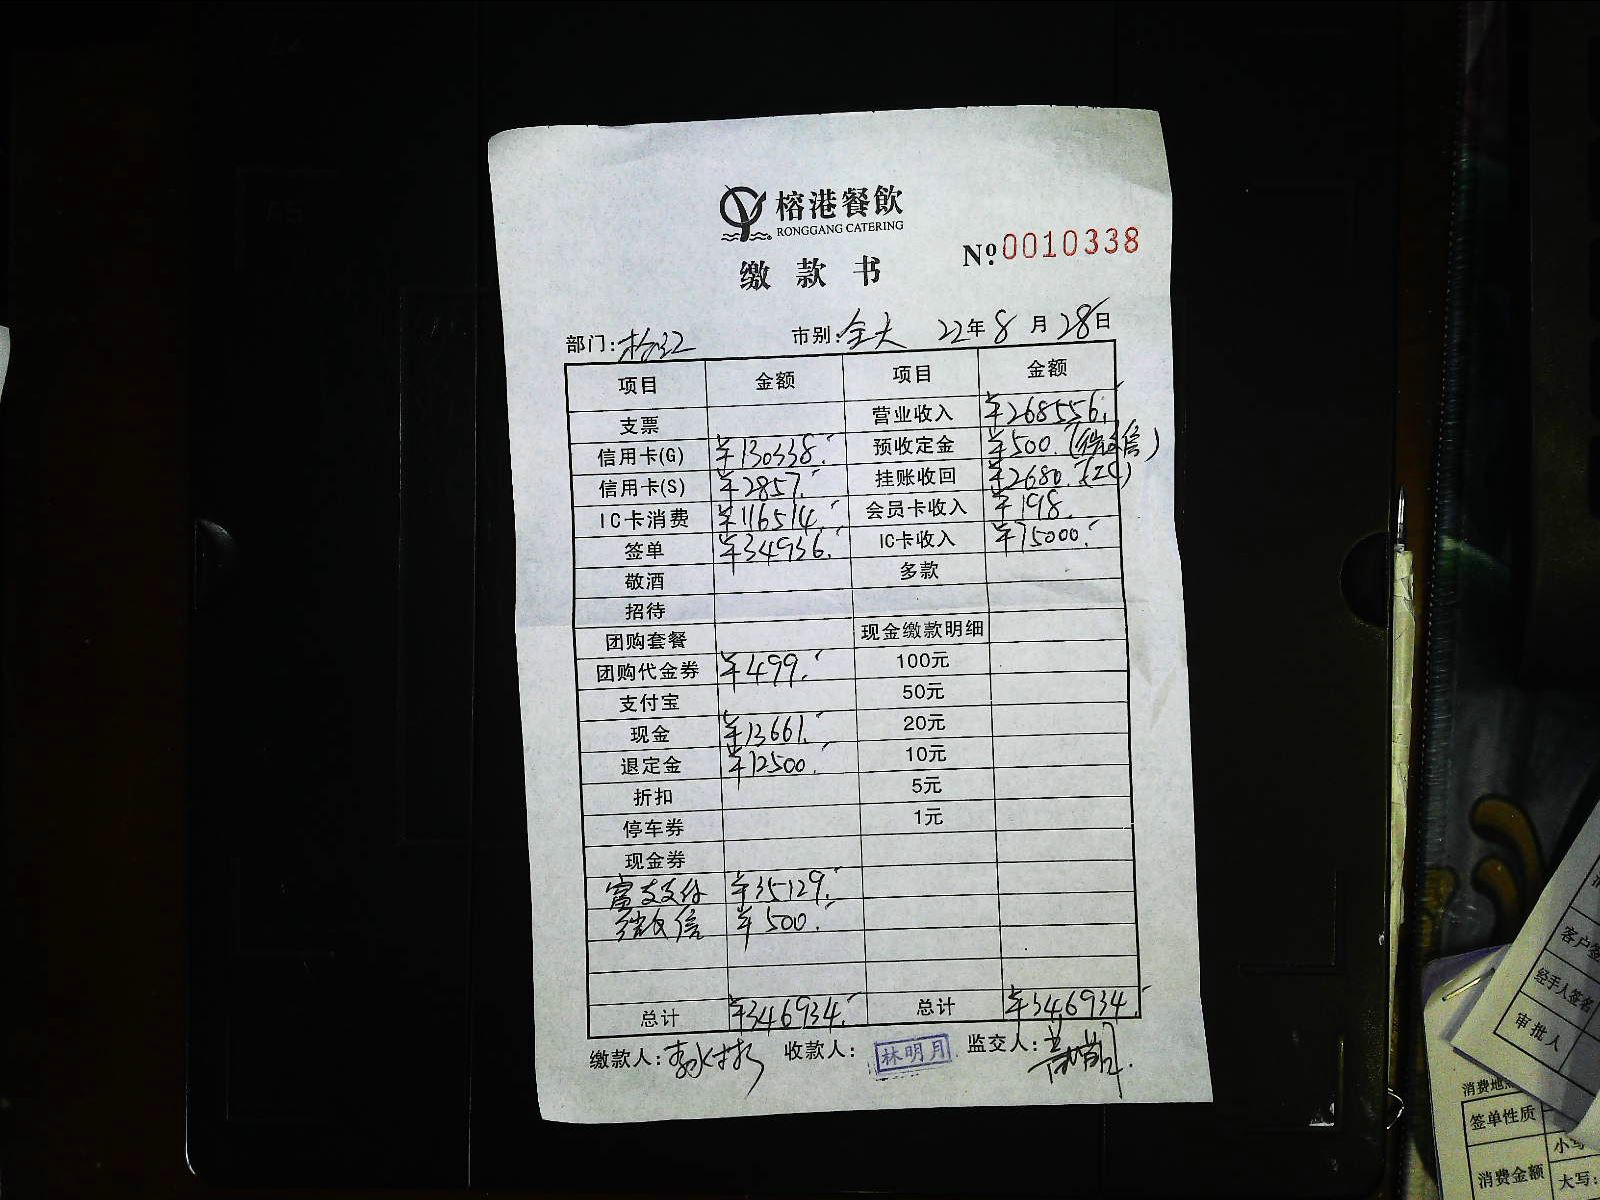 榕港餐飲
RONGGANG CATERING
缴款书 №0010338
部门: 市别:全天 22年8月28日
项目 金额 项目 金额
支票 营业收入 ¥268556.
信用卡(G) ¥130338. 预收定金 ¥500.(微信)
信用卡(S) ¥2857. 挂账收回 ¥2680.(IC)
IC卡消费 ¥116514. 会员卡收入 ¥198.
签单 ¥34936. IC卡收入 ¥75000.
敬酒 多款
招待
团购套餐 现金缴款明细
团购代金券 ¥499. 100元
支付宝 50元
现金 ¥13661. 20元
退定金 ¥12500. 10元
折扣 5元
停车券 1元
现金券
富友支付 ¥35129.
微信 ¥500.
总计 ¥346934. 总计 ¥346934.
缴款人: 收款人: 林明月 监交人:
客户签
经手人签名
审批人
消费地点
签单性质
小写
消费金额
大写: